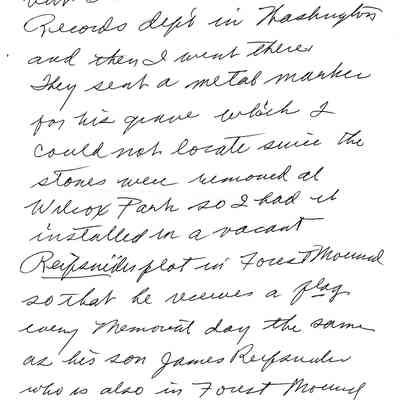 Records dep't in Washington
and then I went there
They sent a metal marker
for his grave which I
could not locate since the
stones were removed at
Wilcox Park so I had it
installed in a vacant
Reifsnider plot in Forest Mound
so that he receives a flag
every Memorial day the same
as his son James Reifsnider
who is also in Forest Mound